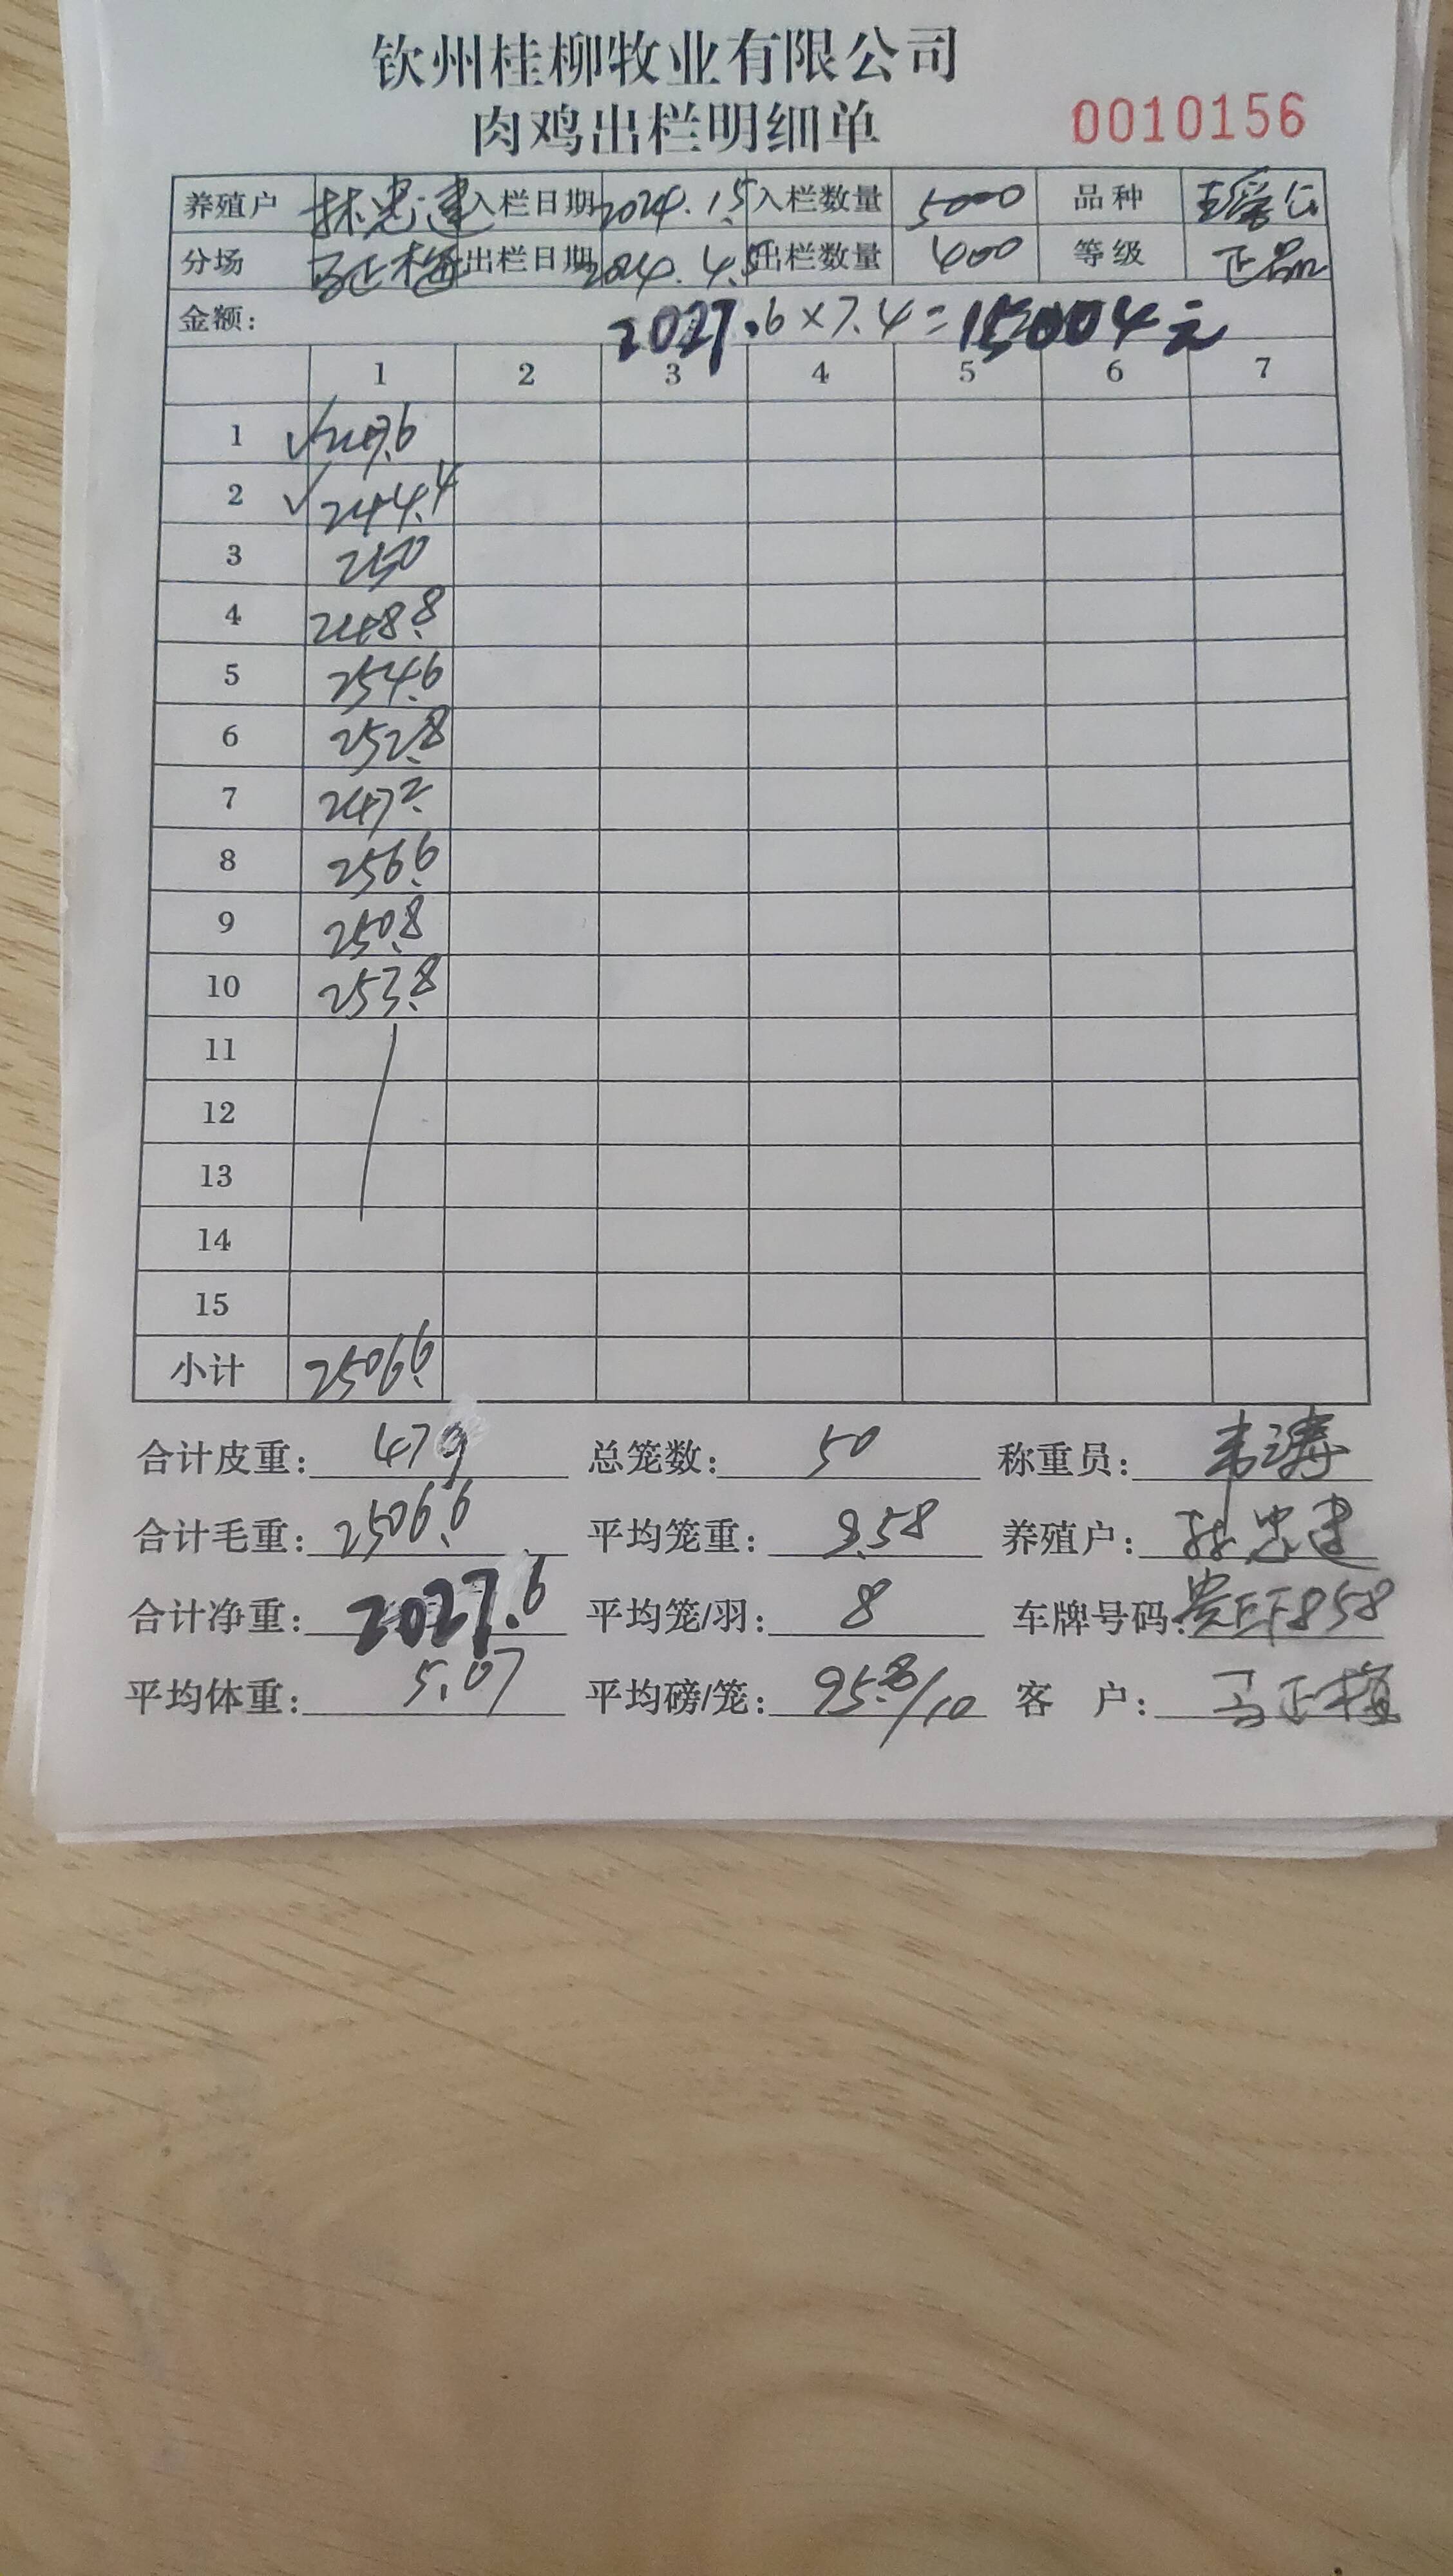 钦州桂柳牧业有限公司
肉鸡出栏明细单 0010156
养殖户 林忠建 入栏日期 2024.1.5 入栏数量 5000 品种
分场 马正梅 出栏日期 2024.4.5 出栏数量 400 等级 正品
金额: 2027.6×7.4=15004元
1 2 3 4 5 6 7
1 ✓247.6
2 ✓244.4
3 250
4 248.8
5 254.6
6 252.8
7 247.2
8 256.6
9 250.8
10 253.8
11
12
13
14
15
小计 2506.6
合计皮重: 479 总笼数: 50 称重员: 韦涛
合计毛重: 2506.6 平均笼重: 9.58 养殖户: 林忠建
合计净重: 2027.6 平均笼/羽: 8 车牌号码:
平均体重: 5.07 平均磅/笼: 95.8/10 客 户: 马正梅